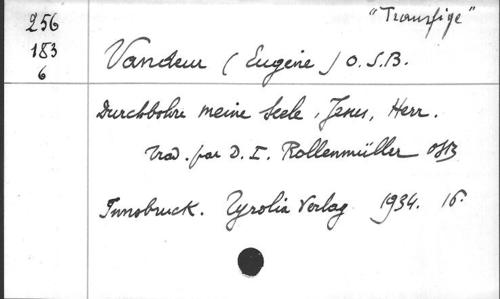 "Transfige"
256
183
6
Vandeur (Eugène) O.S.B.
Durchbohre meine Seele, Jesus, Herr.
Trad. par D. I. Rollenmüller OSB
Innsbruck. Tyrolia Verlag 1934. 16°